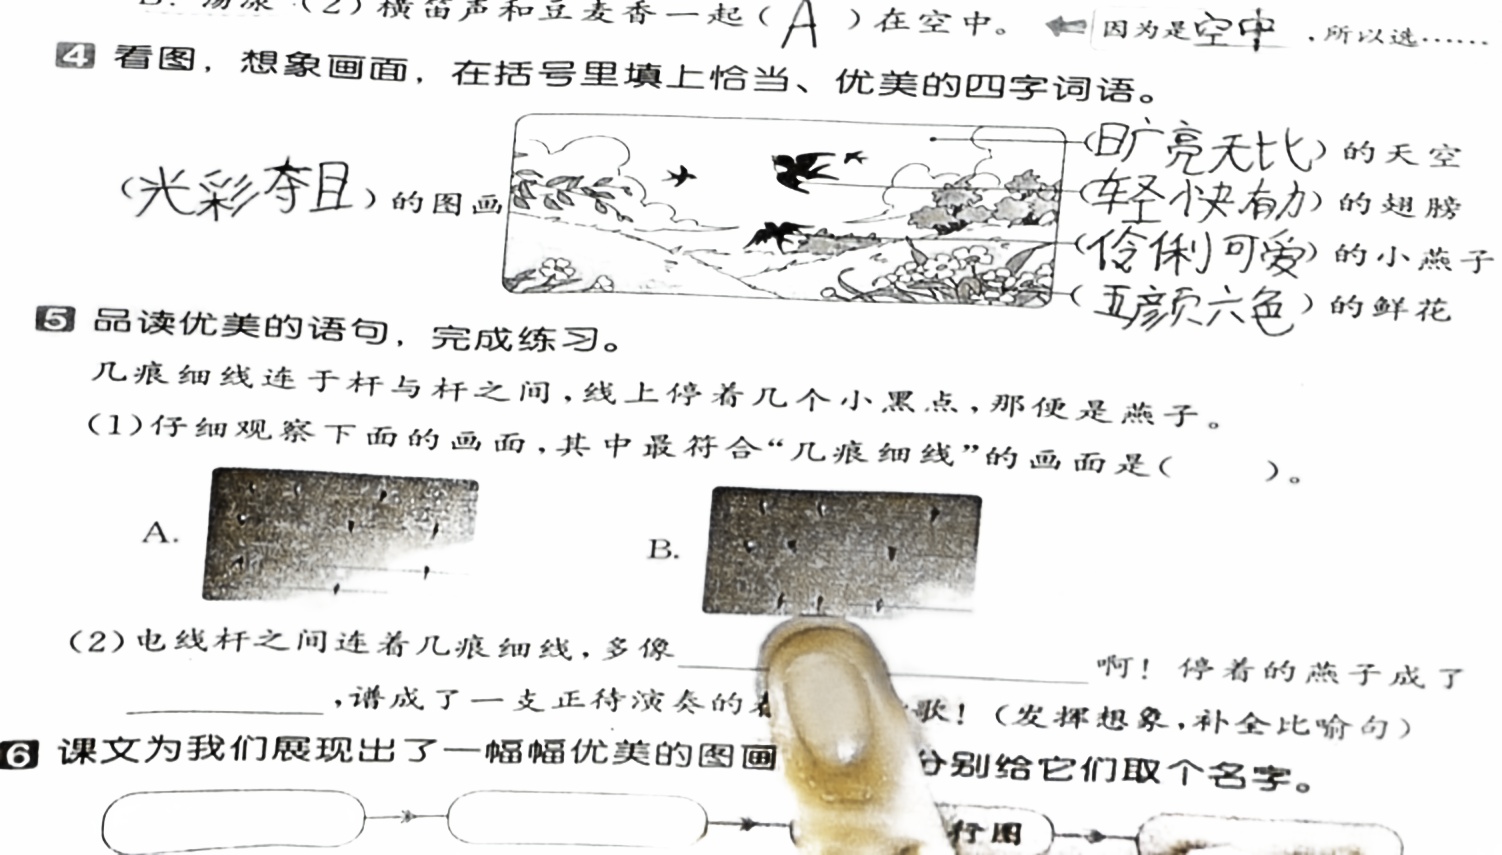 荡漾 (2)横笛声和豆麦香一起(A)在空中。 因为是空中,所以选……
4 看图，想象画面，在括号里填上恰当、优美的四字词语。
(旷亮无比)的天空
(光彩夺目)的图画
(轻快有力)的翅膀
(伶俐可爱)的小燕子
(五颜六色)的鲜花
5 品读优美的语句，完成练习。
几痕细线连于杆与杆之间,线上停着几个小黑点,那便是燕子。
(1)仔细观察下面的画面,其中最符合“几痕细线”的画面是( )。
A. B.
(2)电线杆之间连着几痕细线,多像 啊! 停着的燕子成了
,谱成了一支正待演奏的 歌!(发挥想象,补全比喻句)
6 课文为我们展现出了一幅幅优美的图画 分别给它们取个名字。
行图